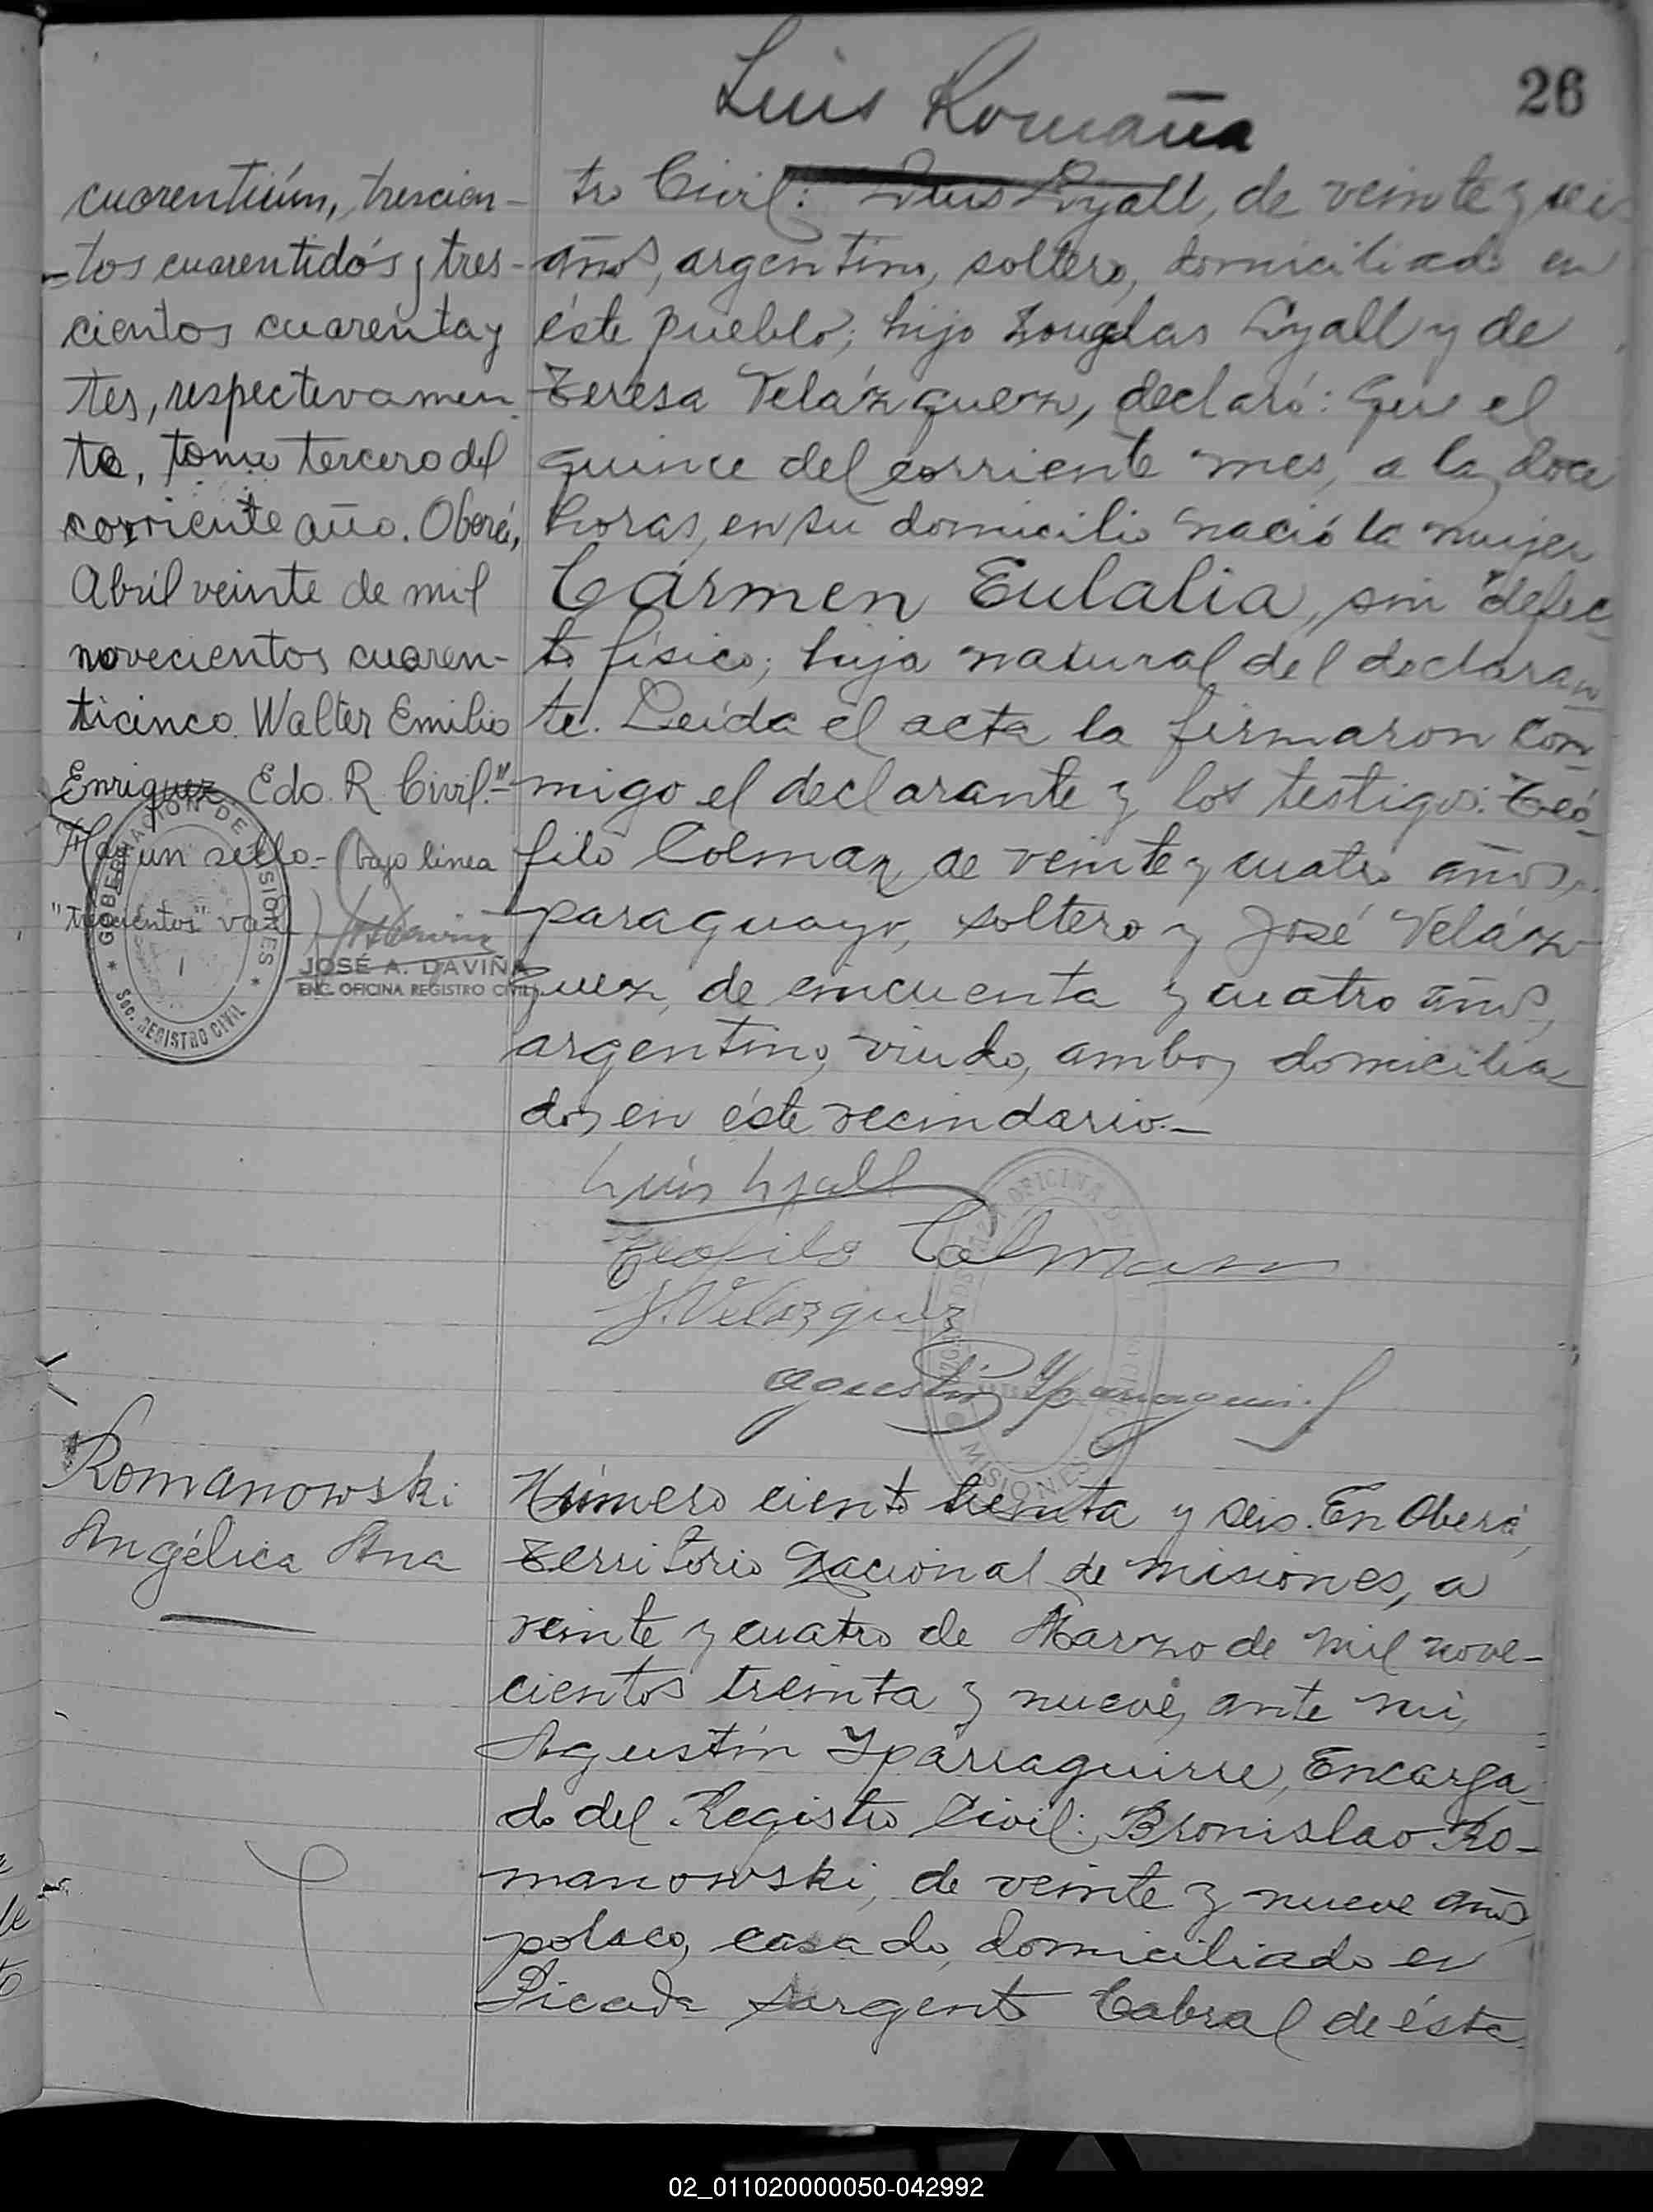 Luis Romaña
26
cuarentiún, trescien-
tos cuarentidós y tres-
cientos cuarenta y
tres, respectivamen
te, tomo tercero del
corriente año. Oberá,
Abril veinte de mil
novecientos cuaren-
ticinco. Walter Emilio
Enriquez Edo. R. Civil."-
Hay un sello.- bajo línea
"trescientos" vale
JOSÉ A. DAVIÑA
ENC. OFICINA REGISTRO CIVIL
GOBERNACION DE MISIONES
Sec. REGISTRO CIVIL
tro Civil: Luis Lyall, de veinte y seis
años, argentino, soltero, domiciliado en
éste pueblo; hijo Douglas Lyall y de
Teresa Velázquez, declaró: Que el
quince del corriente mes, a la doce
horas, en su domicilio nació la mujer
Cármen Eulalia, sin defec-
to físico; hija natural del declaran
te. Leída el acta la firmaron con-
migo el declarante y los testigos: Teó-
filo Colman, de veinte y cuatro años,
paraguayo, soltero y José Veláz-
quez, de cincuenta y cuatro años,
argentino, viudo, ambos domicilia
dos en éste vecindario.-
Luis Lyall
Teofilo Colman
J. Velazquez
Agustín Yparraguirre
OFICINA
MISIONES
Romanowski
Angélica Ana
Número ciento treinta y seis. En Oberá,
Territorio Nacional de Misiones, a
veinte y cuatro de Marzo de mil nove-
cientos treinta y nueve, ante mí,
Agustín Yparraguirre, Encarga-
do del Registro Civil: Bronislao Ro-
manowski, de veinte y nueve años,
polaco, casado, domiciliado en
Picada Sargento Cabral de ésta
02_011020000050-042992